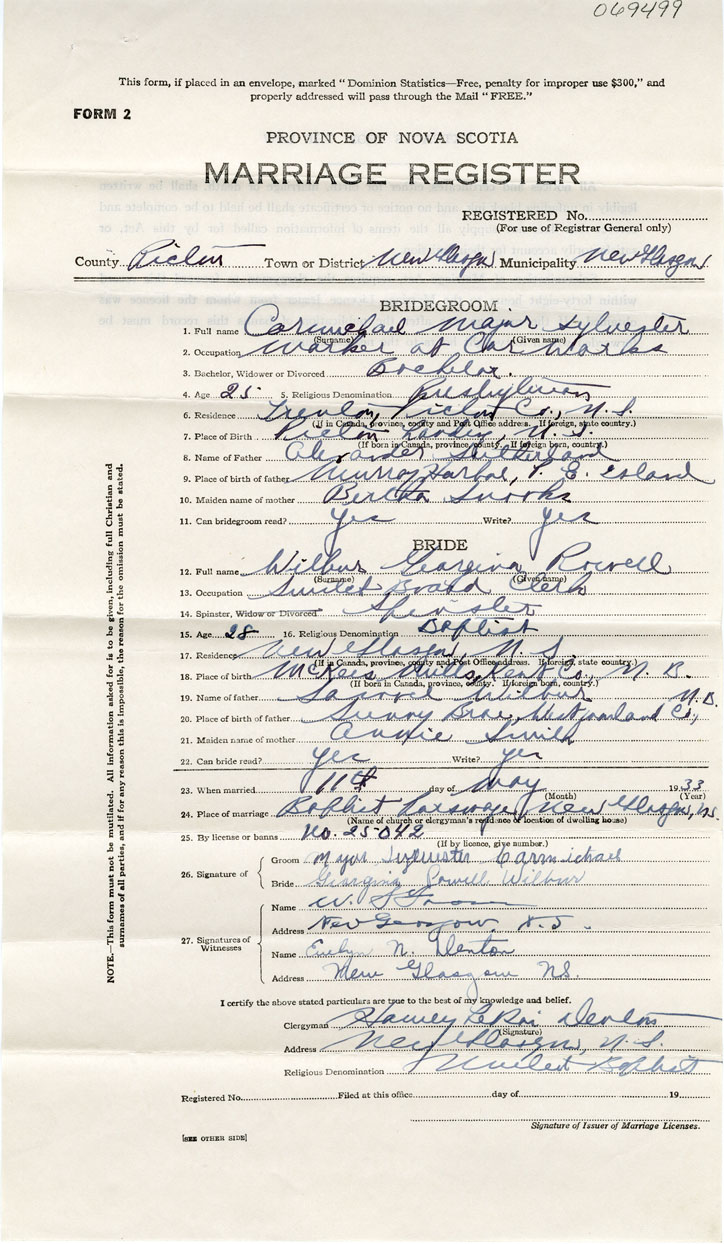 069499
This form, if placed in an envelope, marked “ Dominion Statistics—Free, penalty for improper use $300,” and
properly addressed will pass through the Mail “ FREE.”
FORM 2
PROVINCE OF NOVA SCOTIA
MARRIAGE REGISTER
REGISTERED No.
(For use of Registrar General only)
County Pictou Town or District New Glasgow Municipality New Glasgow
BRIDEGROOM
1. Full name Carmichael Major Sylvester
(Surname) (Given name)
2. Occupation Worker at Car Works
3. Bachelor, Widower or Divorced Bachelor.
4. Age 25 5. Religious Denomination Presbyterian
6. Residence Trenton, Pictou Co., N. S.
(If in Canada, province, county and Post Office address. If foreign, state country.)
7. Place of Birth Pictou Landing, N. S.
(If born in Canada, province, county. If foreign born, country.)
8. Name of Father Alexander Sutherland
9. Place of birth of father Murray Harbor, P. E. Island
10. Maiden name of mother Bertha Snooks
11. Can bridegroom read? Yes Write? Yes
BRIDE
12. Full name Wilbur Georgina Powell
(Surname) (Given name)
13. Occupation Board Clerk
14. Spinster, Widow or Divorced Spinster
15. Age 28 16. Religious Denomination Baptist
17. Residence New Glasgow, N. S.
(If in Canada, province, county and Post Office address. If foreign, state country.)
18. Place of birth McKees Mills, Kent Co., N. B.
(If born in Canada, province, county. If foreign born, country.)
19. Name of father Samuel Wilbur N.B.
20. Place of birth of father Sunny Brae, Westmorland Co.,
21. Maiden name of mother Annie Smith
22. Can bride read? yes Write? yes
23. When married 11th day of May 1933
(Month) (Year)
24. Place of marriage Baptist Parsonage, New Glasgow, N.S.
(Name of church or clergyman's residence or location of dwelling house)
25. By license or banns No. 25042
(If by licence, give number.)
26. Signature of Groom Major Sylvester Carmichael
Bride Georgina Powell Wilbur
27. Signatures of Witnesses Name W.
Address New Glasgow N.S.
Name Evelyn N. Denton
Address New Glasgow NS.
I certify the above stated particulars are true to the best of my knowledge and belief.
Clergyman Harvey LeRoi Denton
(Signature)
Address New Glasgow, N. S.
Religious Denomination United Baptist
Registered No. Filed at this office day of 19
Signature of Issuer of Marriage Licenses.
[SEE OTHER SIDE]
NOTE.—This form must not be mutilated. All information asked for is to be given, including full Christian and
surnames of all parties, and if for any reason this is impossible, the reason for the omission must be stated.